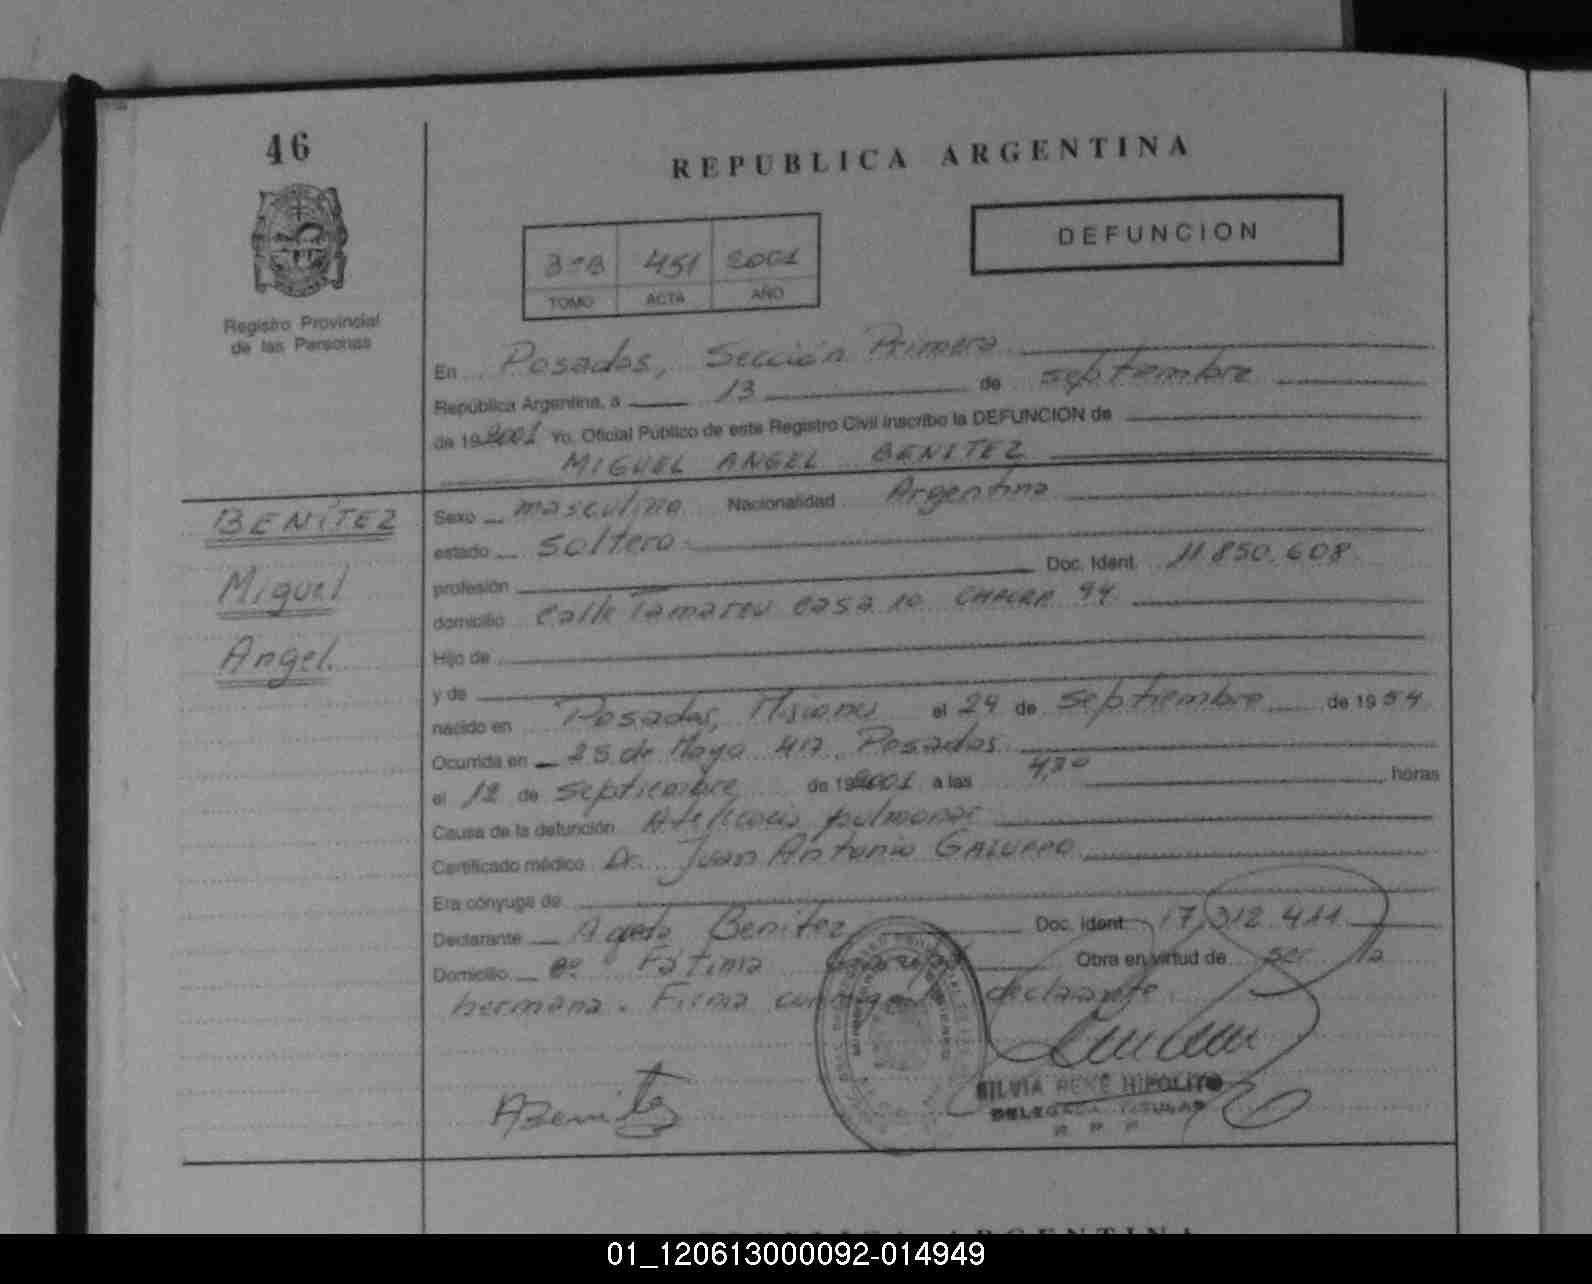 46
REPUBLICA ARGENTINA
DEFUNCION
3ºB 451 2001
TOMO ACTA AÑO
Registro Provincial
de las Personas
En Posadas, Sección Primera
República Argentina, a 13 de septiembre
de 192001 Yo, Oficial Público de este Registro Civil inscribo la DEFUNCION de
MIGUEL ANGEL BENITEZ
BENÍTEZ
Miguel
Angel.
Sexo masculino Nacionalidad Argentina
estado soltero
profesión Doc. Ident. 11.850.608
domicilio Calle casa 10 CHACRA 94
Hijo de
y de
nacido en Posadas, Misiones el 24 de septiembre de 1954
Ocurrida en 25 de Mayo 417 Posadas
el 12 de septiembre de 192001 a las 4,30 horas
Causa de la defunción pulmonar
Certificado médico Dr. Juan Antonio GALUPPO
Era cónyuge de
Declarante Benitez Doc. Ident. 17.312.411
Domicilio Bº Fátima Obra en virtud de ser la
hermana. Firma conmigo declarante
ABenitez
SILVIA RENE HIPOLITO
DELEGADA TITULAR
R P P
REPUBLICA ARGENTINA
01_120613000092-014949